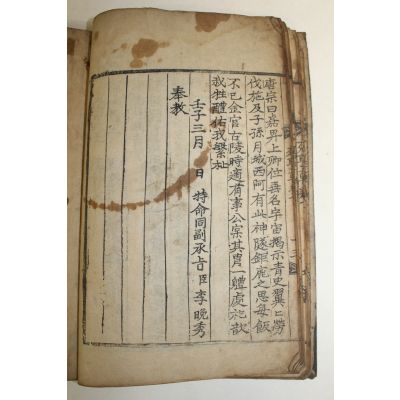 唐宗曰嘉畀上卿位無名字宙揭示青史翼匕勞
伐施及子孫月城西阿有此神隧鉅鹿之思每飯
不已金官古陵時適有事公其胄一體處祀歆
我牲醴佑我繁祉
壬子三月 日 特命同副承旨臣李晩秀
奉教